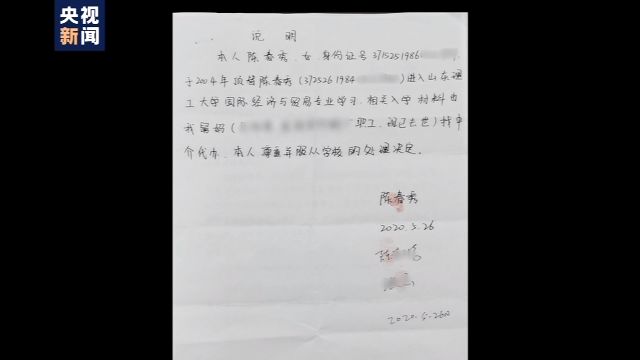 央视
新闻
说 明
本人陈春秀，女，身份证号3715251986
于2004年顶替陈春秀（3725261984）进入山东理
工大学国际经济与贸易专业学习，相关入学材料由
我舅妈（职工，现已去世）找中
介代办，本人尊重并服从学校的处理决定。
陈春秀
2020.5.26
2020.5.26